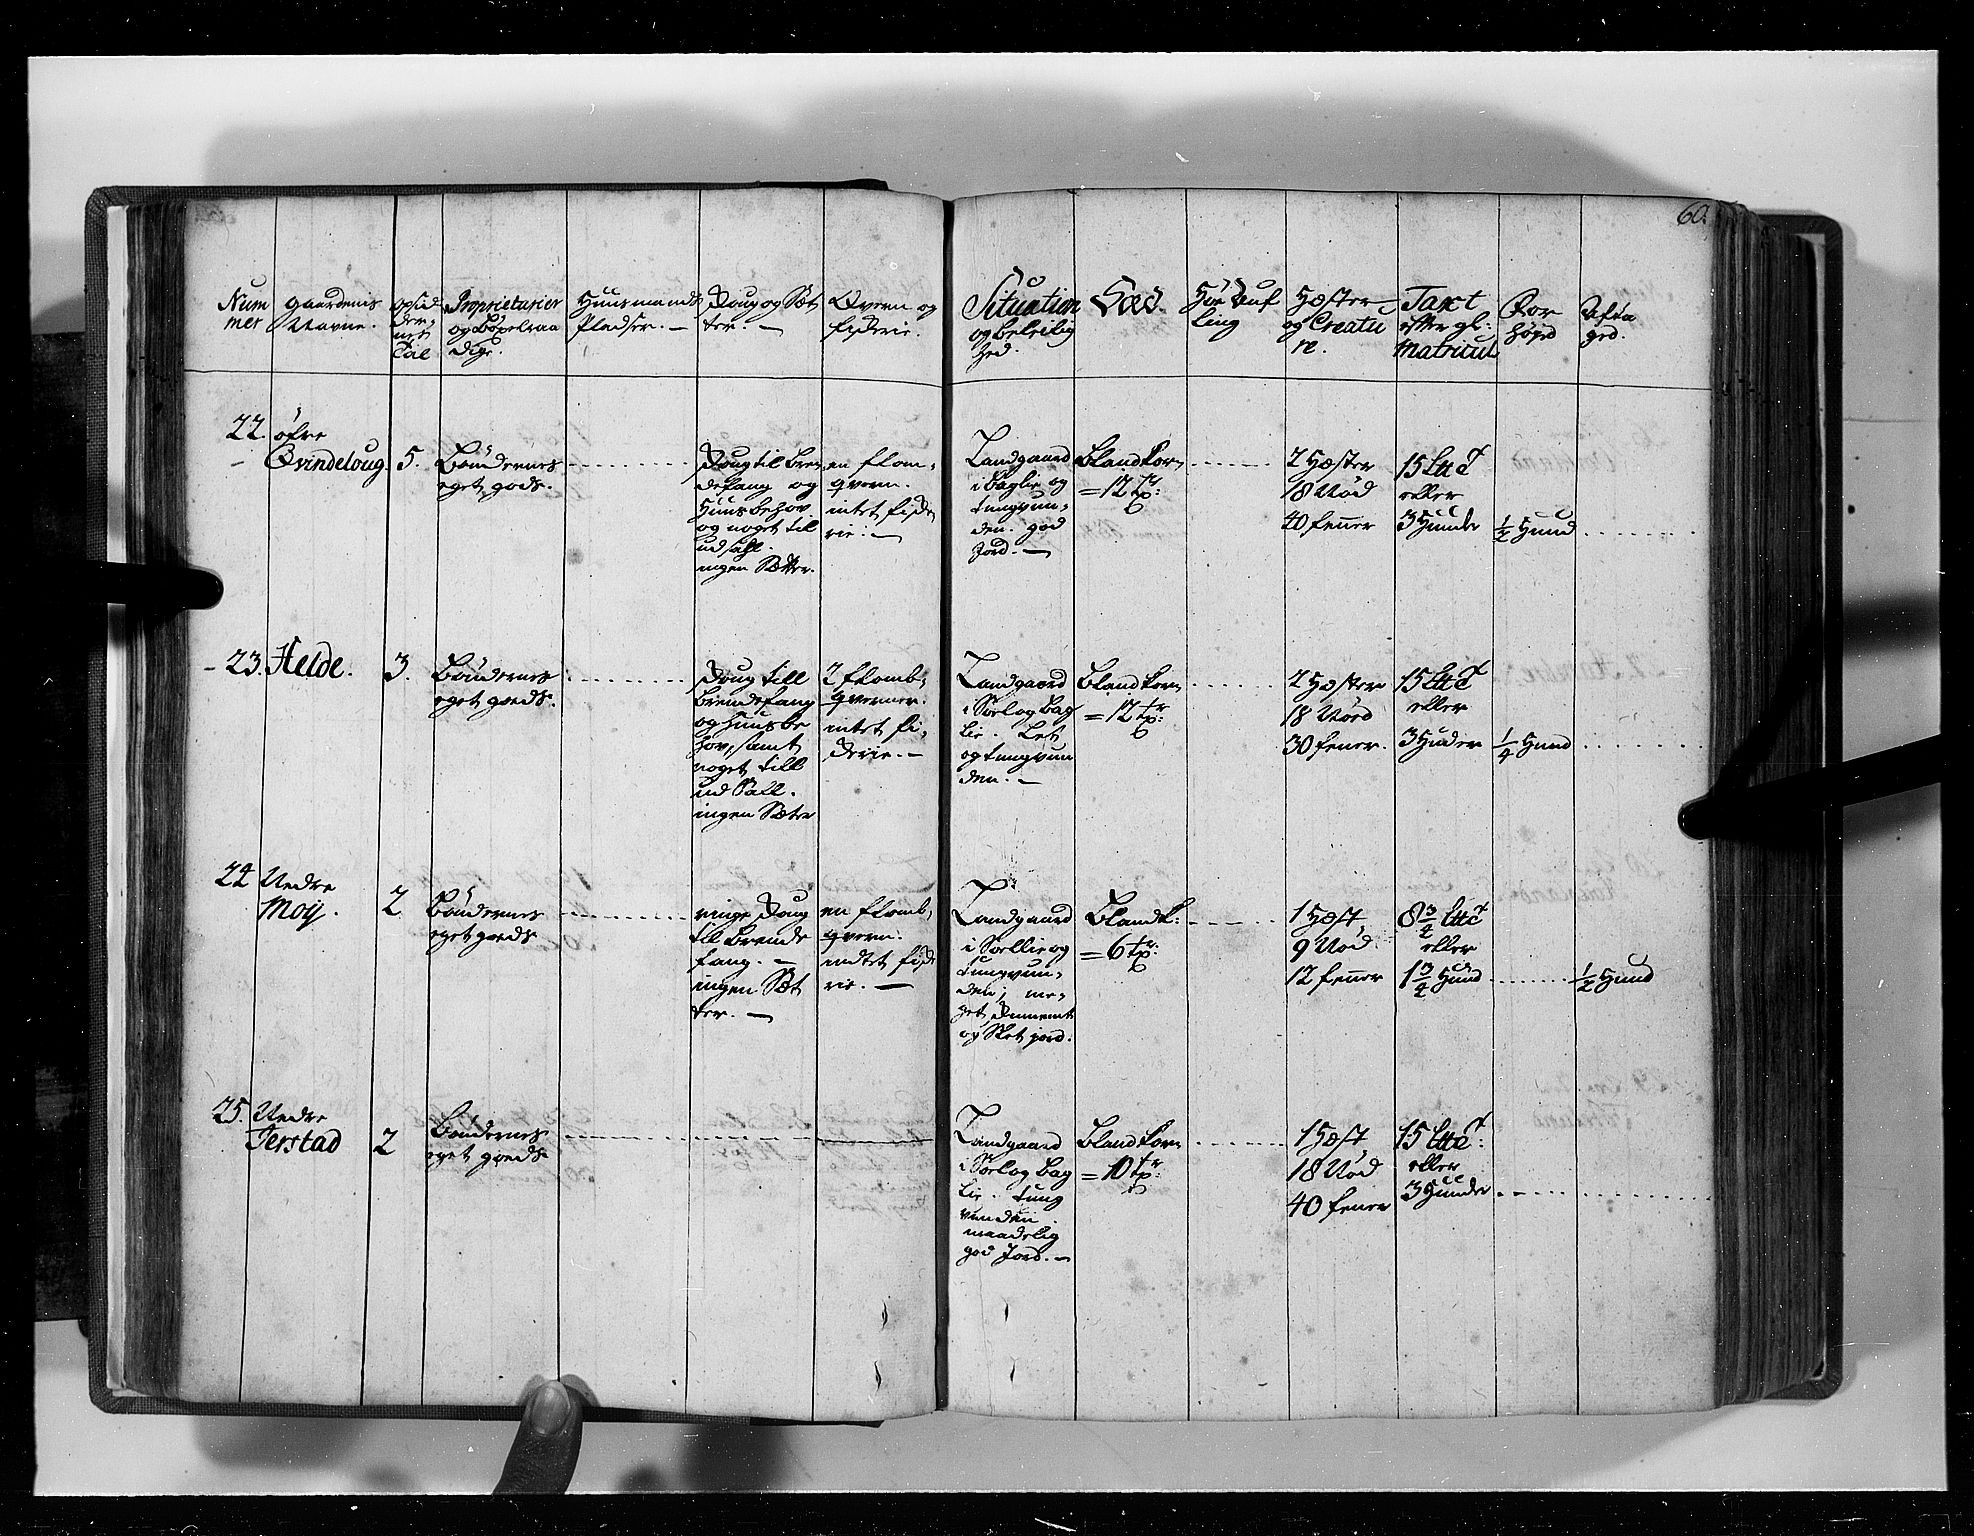 60.
Num
mer
gaardenis
Navne.
opsid
der-
nes
Tal
Proprietarier
og Böxelraa
dige.
Huusmands
Pladser. —
Skoug og Sæt
ter. —
Qvern og
fiskerie.
Situation
og beleilig
hed.
Sæd.
Höe Auf
ling
Hæster
og Creatu
re.
Taxt
efter gl:
Matricul
For
høyed
Afta
ged.
22. öfre
Qvindeloug. 5.
Böndernes
eget gods.
Skoug til bren
defang og
Huusbehov
og noget til
udsahl.
ingen Sætter.
en flom-
qvern.
intet fiske
rie. —
Landgaard
i Baglie og
tungvun-
den. god
Jord. —
Blandkorn
= 12 tr:
2 Hæster
18 Nöd
40 fenner
15 Lttr
eller
3 Hunder
½ Hund
- 23. Helde. 3.
Böndernes
eget goeds.
Skoug till
brendefang
og Huusbe
hov, samt
noget till
udSall.
ingen Sæter
2 flomb-
qverner.
intet fi-
skerie. —
Landgaard
i Soel og bag
lie. Let
og tungvun
den. —
Blandkorn
= 12 tr:
2 Hæster
18 Nöed
30 fener.
15 Lttr
eller
3 Huder
¼ Hund
24 Nedre
Moy. 2
Böndernes
eget goeds
ringe Skoug
til brende
fang. —
ingen Sæt
ter. —
en flomb-
qvern.
indtet fiske
rie. —
Landgaard
i Soellie og
tungvun-
den; me-
get
og Slet jord.
Blandk:
= 6 tr:
1 Hæst,
9 Nöd
12 fenner
8 ¾ Lttr
eller
1 ¾ Hund
½ Hund
25. Nedre
Jerstad 2
Böndernes
eget goeds
Landgaard
i Soel og bag
lie. tung
vunden.
maadelig
god Jord. —
Blandkorn
= 10 tr:
1 Hæst,
18 Nöd
40 fener
15 Lttr:
eller
3 Hunder